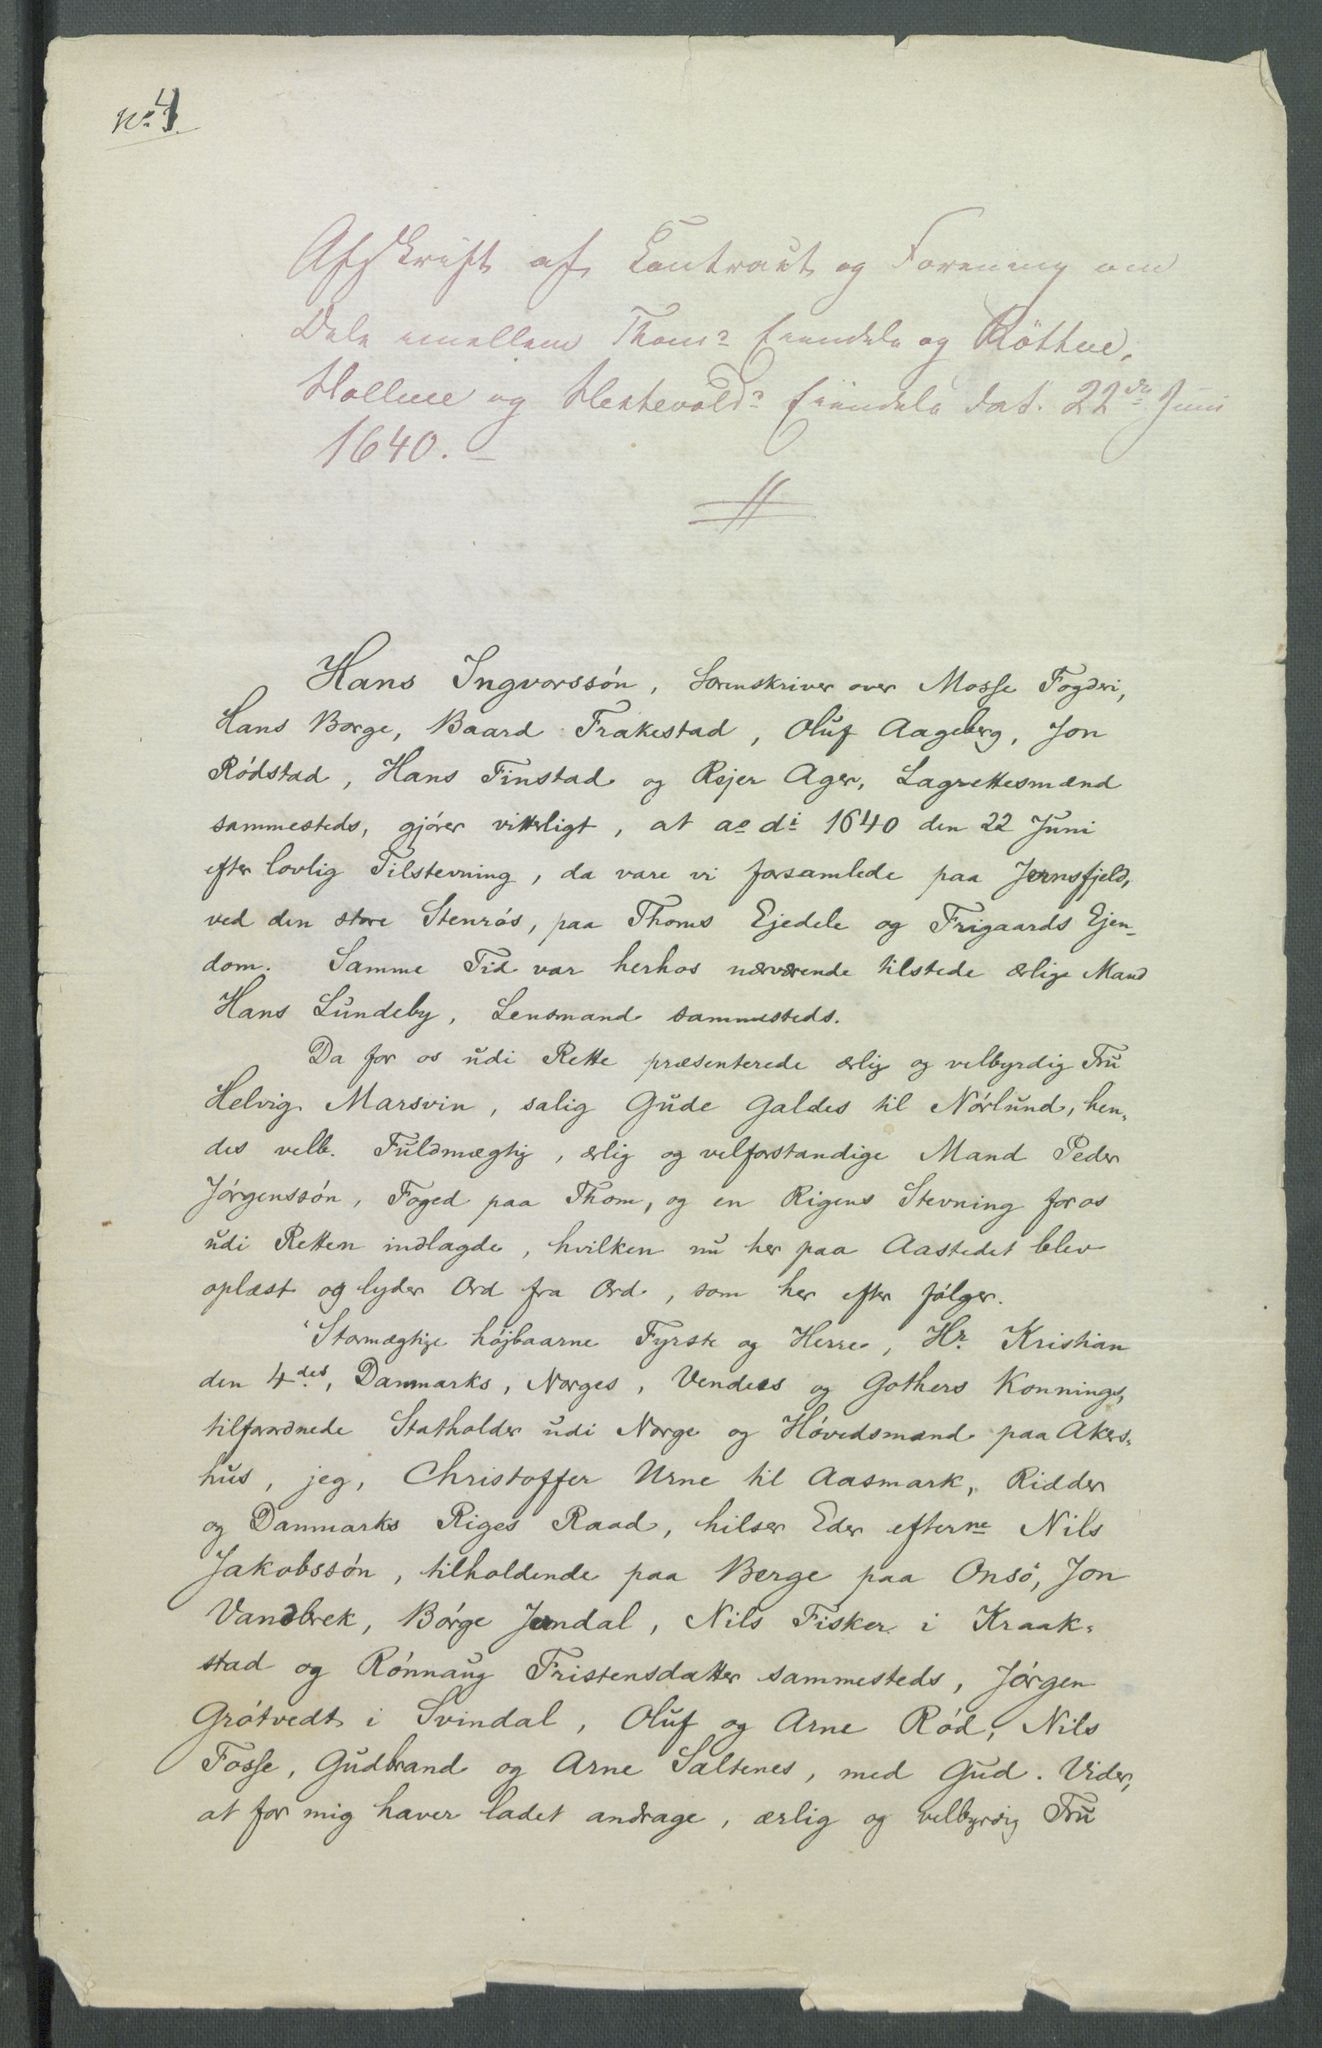 No 4.
Afskrift af Contract og Forening om
Dele imellem Thoms Eiendele og Röttne,
Hollene og Heste­volds Eiendele dat. 22de Juni
1640.
Hans Ingvorssön, Sorenskriver over Mosse Fogderi,
Hans Borge, Baard Frakestad, Oluf Aageberg, Jon
Rödstad, Hans Finstad og Rejer Ager, Lagrettesmænd
sammesteds, gjörer vitterligt, at ao di 1640 den 22 Juni
efter lovlig Tilstevning, da vare vi forsamlede paa Jernsfjeld,
ved den store Stenrös, paa Thoms Ejedele og Frigaards Ejen-
dom. Samme Tid var herhos nærværende tilstede ærlige Mand
Hans Lundeby, Lensmand sammesteds.
Da for os udi Rette præsenterede ærlig og velbyrdig Fru
Helvig Marsvin, salig Gude Galdes til Nörlund, hen-
des velb. Fuldmægtig, ærlig og velforstandige Mand Peder
Jörgenssön, Foged paa Thom, og en Rigens Stevning for os
udi Retten indlagde, hvilken nu her paa Aastedet blev
oplæst og lyder Ord fra Ord, som her efter fölger.
"Stormægtige höjbaarne Fyrste og Herre, Hr. Kristian
den 4des, Danmarks, Norges, Vendes og Gothers Konnings,
tilforordnede Statholder udi Norge og Hövedsmand paa Akers-
hus, jeg, Christoffer Urne til Aasmark, Ridder
og Danmarks Riges Raad, hilser Eder efterne Nils
Jakobssön, tilholdende paa Berge paa Onsö, Jon
Vandbrek, Börge Jondal, Nils Fisker i Kraak-
stad og Rönnaug Fristensdatter sammesteds, Jörgen
Grötvedt i Svindal, Oluf og Arne Röd, Nils
Fosse, Gudbrand og Arne Saltenes, med Gud. Vider,
at for mig haver ladet andrage, ærlig og velbyrdig Fru